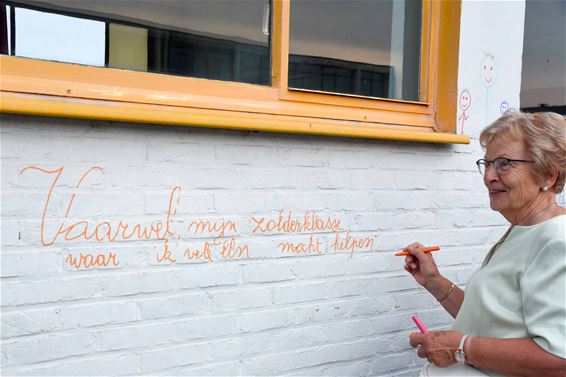 Vaarwel, mijn zolderklasje
waar ik velen macht helpen